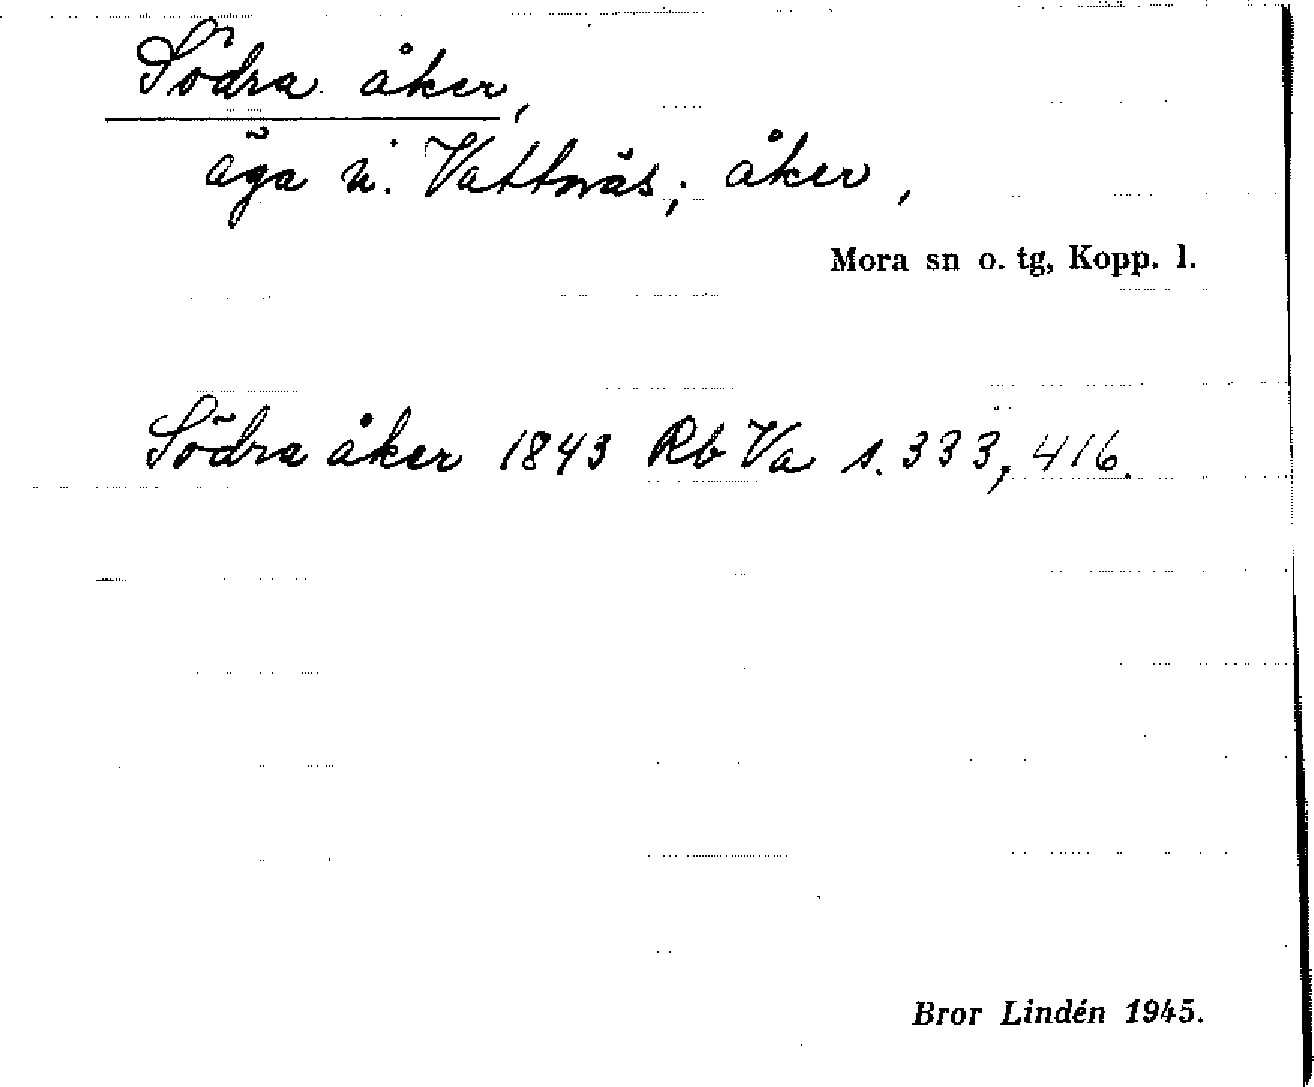 Södra åker,
äga i. Vattnäs; åker,
Mora sn o. tg, Kopp. l.
Södra åker 1843 Rb Va s. 333, 416.
Bror Lindén 1945.